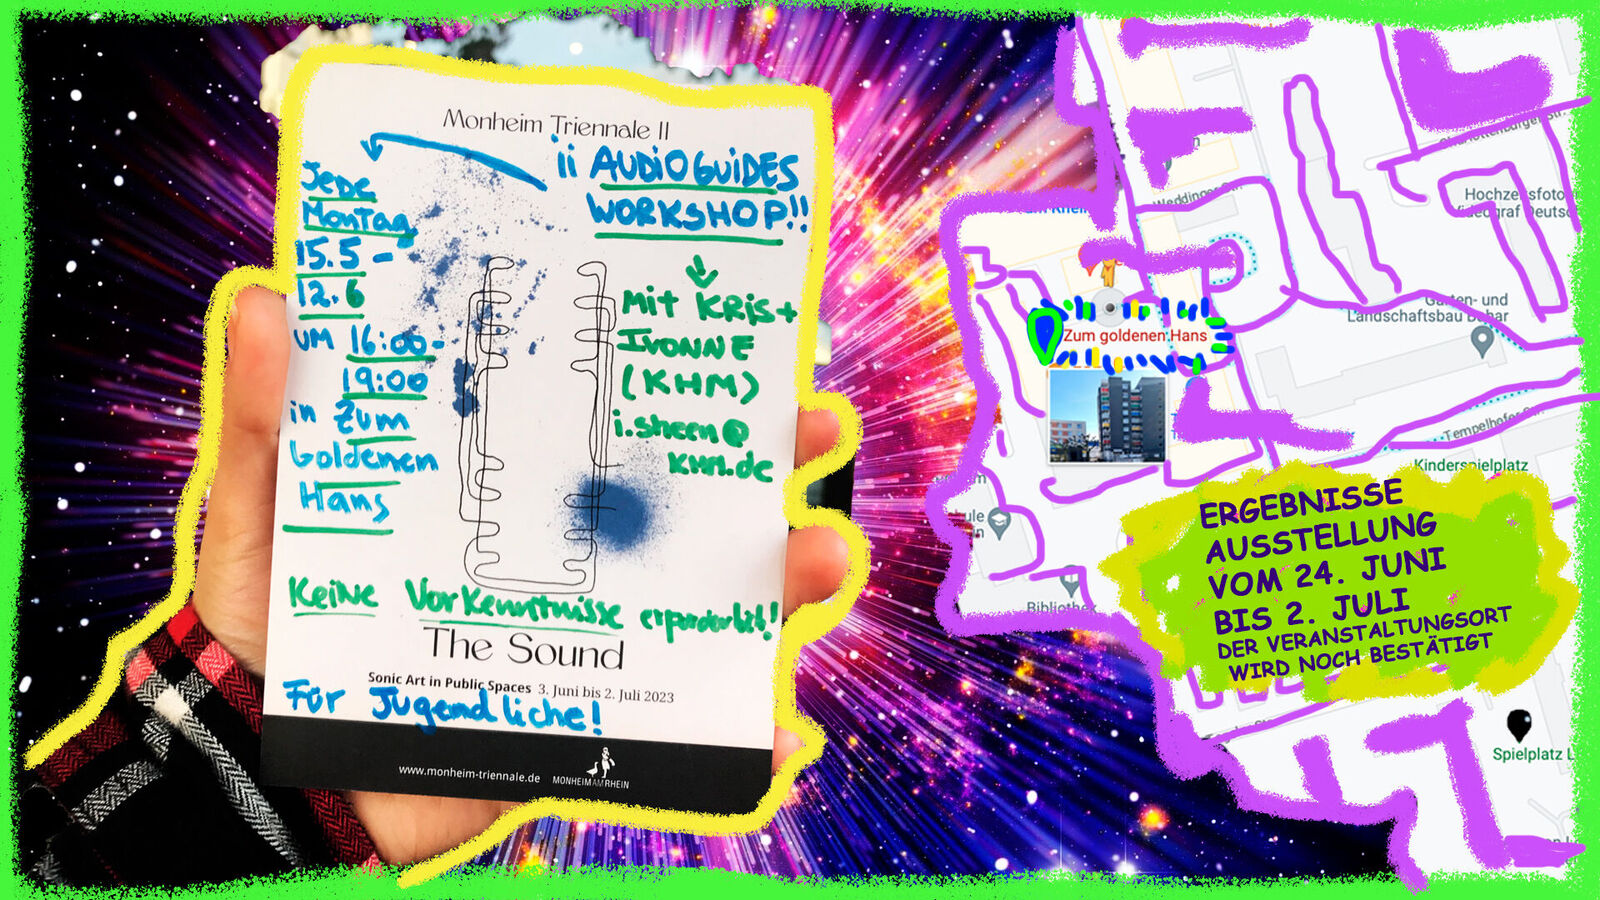 Monheim Triennale II
¡¡ AUDIOGUIDES
WORKSHOP!!
Jede
Montag
15.5 -
12.6
um 16:00-
19:00
in Zum
Goldenen
Hans
Mit KRis+
IVONNE
(KHM)
i.sheen@
khm.de
KeiNe VorKenntnisse erforderlich!
The Sound
Sonic Art in Public Spaces 3. Juni bis 2. Juli 2023
Für Jugendliche!
www.monheim-triennale.de
MONHEIM AM RHEIN
Hochzeitsfoto
Garten- und
Landschaftsbau
Zum goldenen Hans
Kinderspielplatz
ERGEBNISSE
AUSSTELLUNG
VOM 24. JUNI
BIS 2. JULI
DER VERANSTALTUNGSORT
WIRD NOCH BESTÄTIGT
Spielplatz L